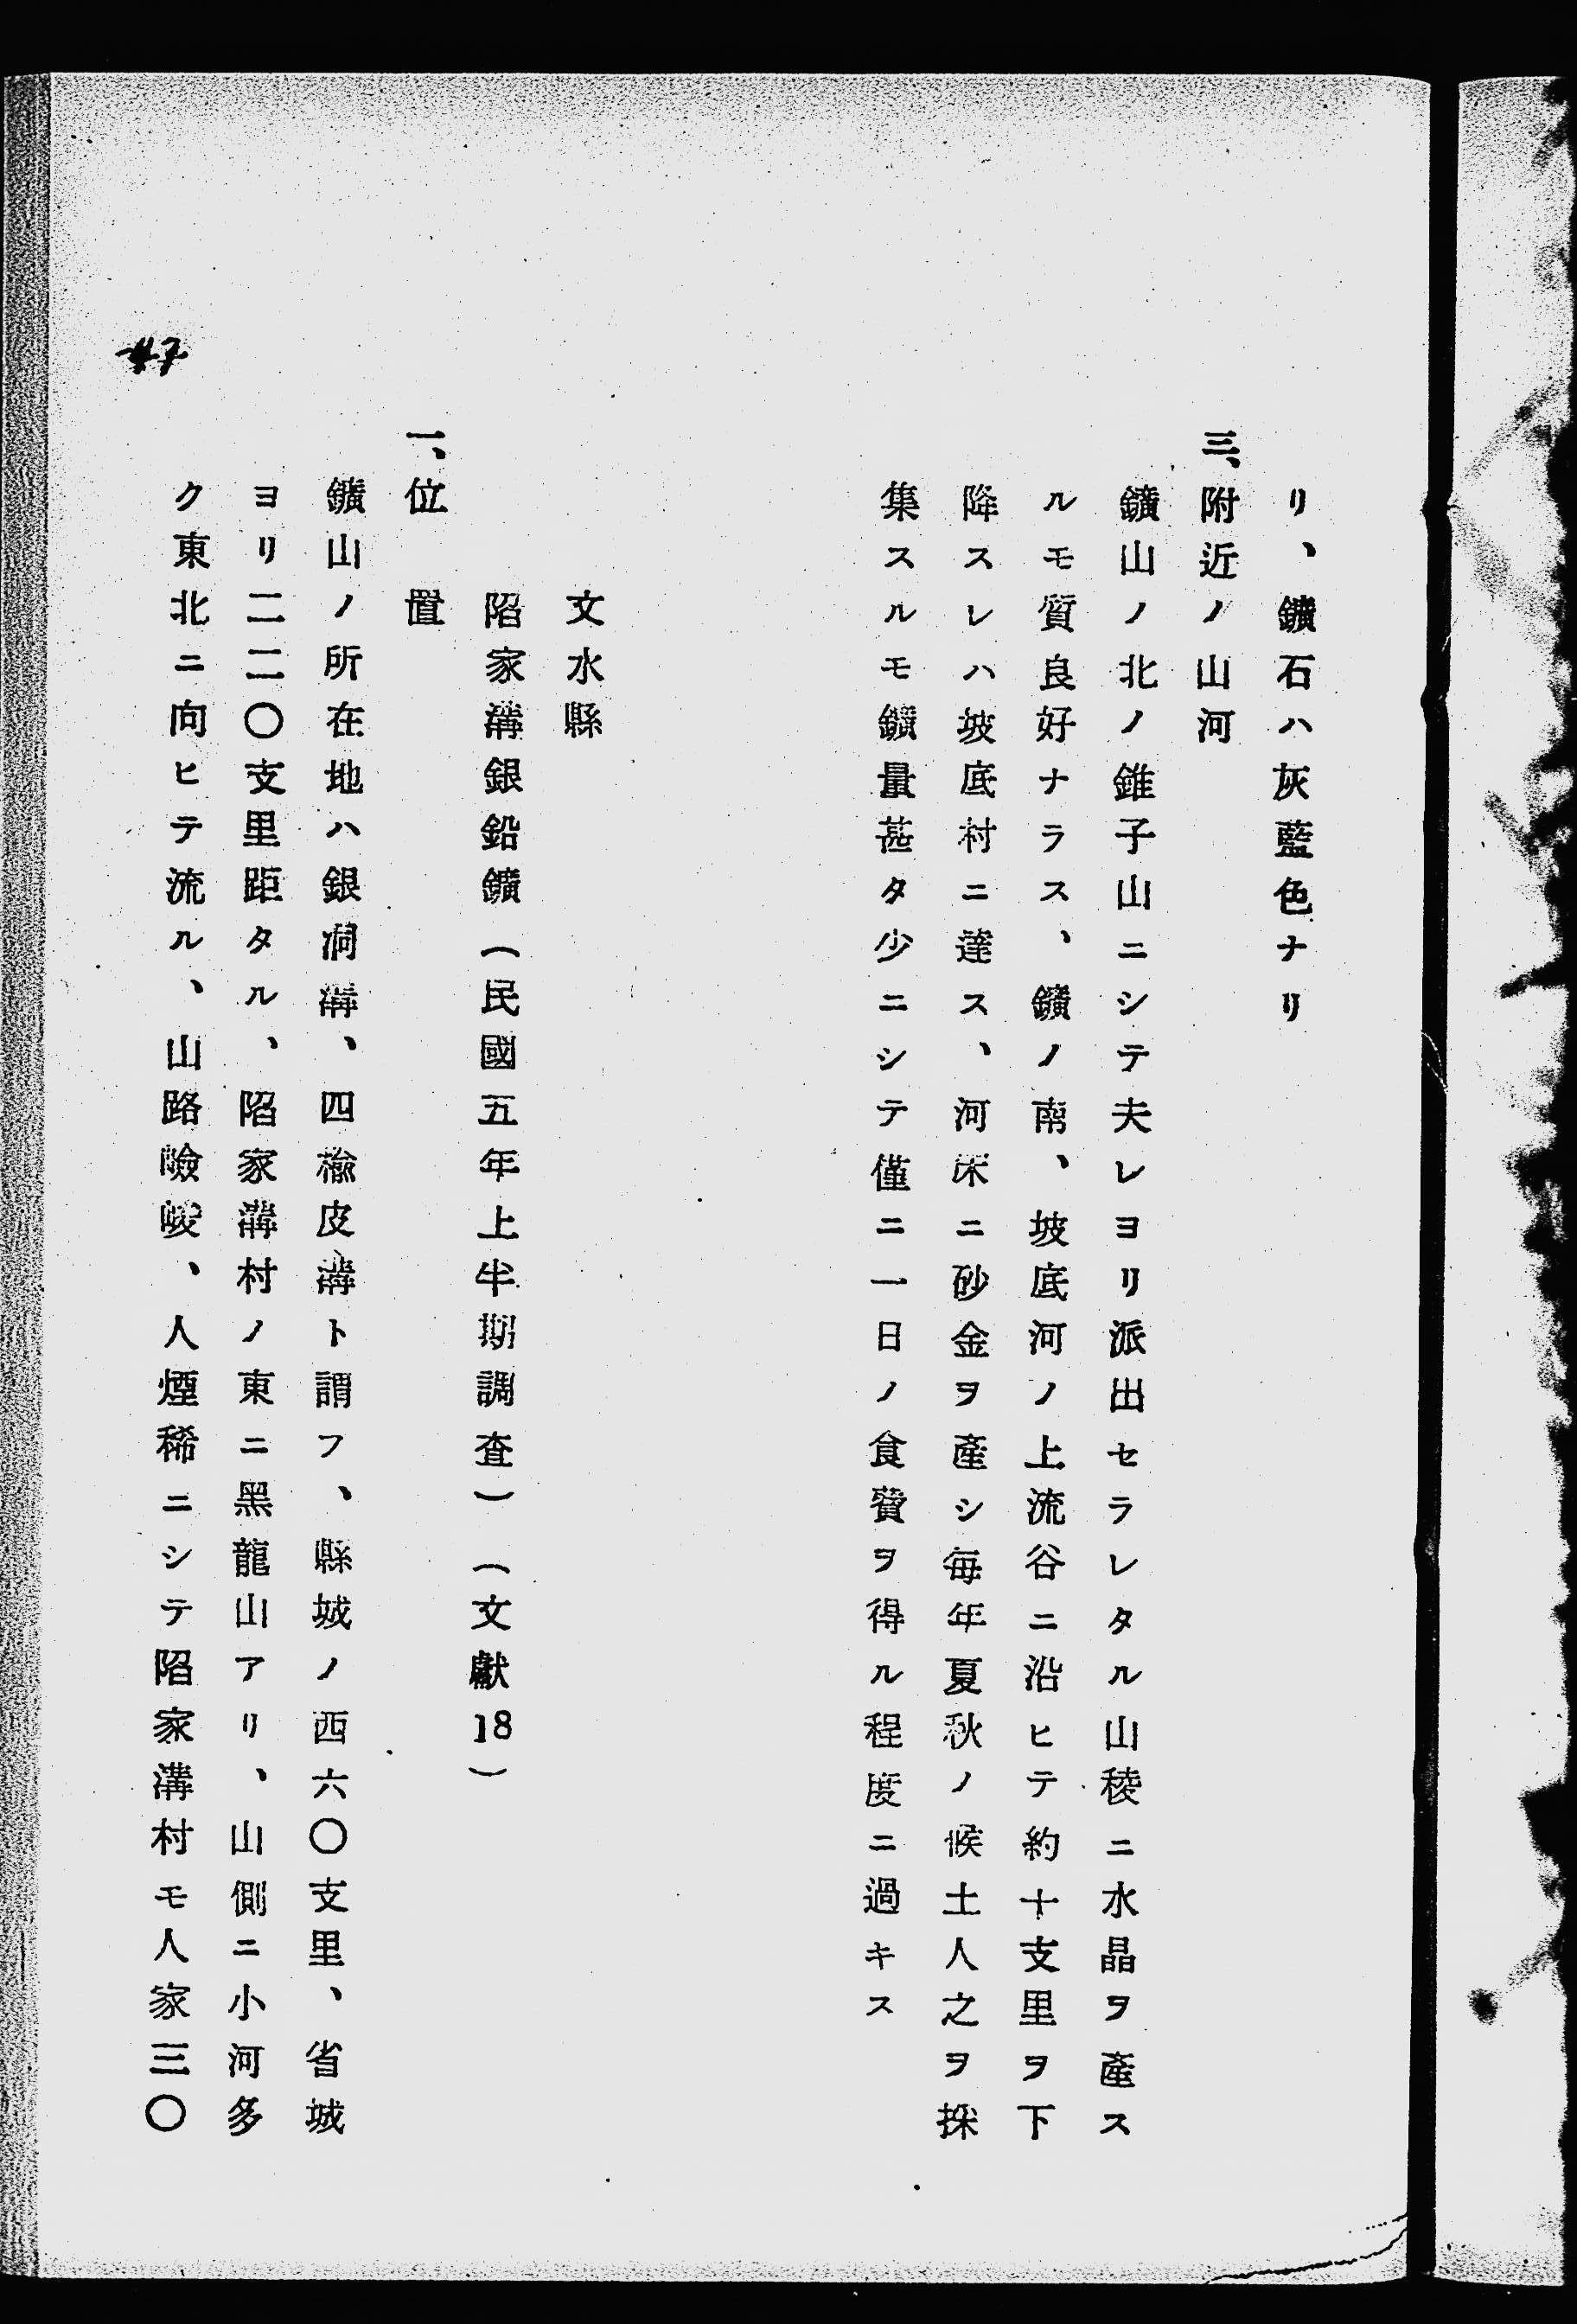 リ、鑛石ハ灰藍色ナリ
三、附近ノ山河
鑛山ノ北ノ錐子山ニシテ夫レヨリ派出セラレタル山稜ニ水晶ヲ產ス
ルモ質良好ナラス、鑛ノ南、坡底河ノ上流谷ニ沿ヒテ約十支里ヲ下
降スレハ坡底村ニ達ス、河床ニ砂金ヲ產シ每年夏秋ノ候土人之ヲ採
集スルモ鑛量甚タ少ニシテ僅ニ一日ノ食費ヲ得ル程度ニ過キス
文水縣
陷家溝銀鉛鑛(民國五年上半期調查)(文獻18)
一、位置
鑛山ノ所在地ハ銀洞溝、四楡皮溝ト謂フ、縣城ノ西六〇支里、省城
ヨリ二二〇支里距タル、陷家溝村ノ東ニ黑龍山アリ、山側ニ小河多
ク東北ニ向ヒテ流ル、山路險峻、人煙稀ニシテ陷家溝村モ人家三〇
47